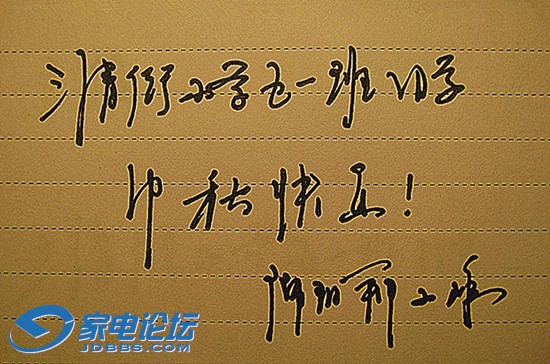 清街小学五一班同学
中秋快乐！
家电论坛
JDBBS.COM